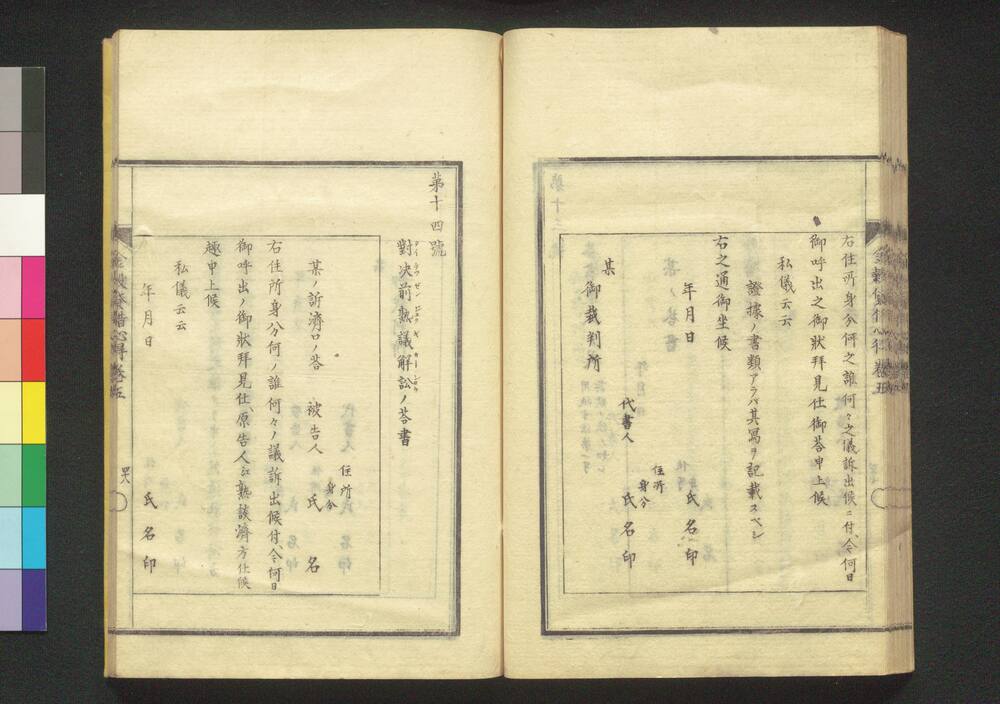 右住所身分何之誰何々之儀訴出候ニ付、今何日
御呼出之御狀拜見仕御荅申上候
私儀云云
證據ノ書類アラバ其寫ヲ記載スベシ
右之通御坐候
年月日
氏名印
住所
身分
代書人
氏名印
某御裁判所
第十四號
對决前熟議解訟ノ荅書
某ノ訴濟口ノ荅
住所
身分
被告人
氏名
右住所身分何ノ誰何々ノ議訴出候付、今何日
御呼出ノ御狀拜見仕、原告人江熟談濟方仕候
趣申上候
私儀云云
年月日
氏名印
心得卷五